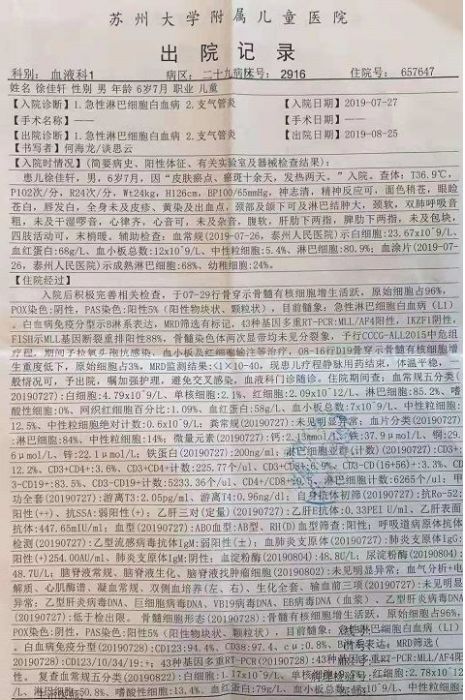 苏州大学附属儿童医院
出院记录
科别: 血液科1 病区: 二十九病床号: 2916 住院号: 657647
姓名 徐佳轩 性别 男 年龄 6岁7月 职业 儿童
【入院诊断】1.急性淋巴细胞白血病 2.支气管炎 【入院日期】2019-07-27
【手术名称】—— 【手术日期】——
【出院诊断】1.急性淋巴细胞白血病 2.支气管炎 【出院日期】2019-08-25
【书写者】何海龙/谈思云
【入院时情况】(简要病史、阳性体征、有关实验室及器械检查结果):
患儿徐佳轩，男，6岁7月，因"皮肤瘀点、瘀斑十余天，发热两天。"入院。查体：T36.9℃，
P102次/分，R24次/分，Wt:24kg，H126cm，BP100/65mmHg，神志清，精神反应可，面色稍苍，眼睑
苍白，唇发白，全身未及皮疹、黄染及出血点，颈部及颌下可及淋巴结肿大，颈软，双肺呼吸音
粗，未及干湿啰音，心律齐，心音可，未及杂音，腹软，肝肋下两指，脾肋下两指，未及包块，
四肢活动可，末梢暖。辅助检查：血常规(2019-07-26，泰州人民医院)示白细胞:23.67x10^9/L，
血红蛋白:68g/L，血小板总数:12x10^9/L，中性粒细胞:5.4%，淋巴细胞:80.9%；血涂片(2019-07-
26，泰州人民医院)示成熟淋巴细胞:68%，幼稚细胞:24%。
【住院经过】
入院后积极完善相关检查，于07-29行骨穿示骨髓有核细胞增生活跃，原始细胞占96%，
POX染色:阴性，PAS染色:阳性5%(阳性物块状、颗粒状)，目前髓象：急性淋巴细胞白血病(L1)
。白血病免疫分型示B淋系表达，MRD筛选有标记，43种基因多重RT-PCR:MLL/AF4阳性，IKZF1阴性，
FISH示MLL基因断裂重排阳性88%，骨髓染色体两次显带均未见分裂象，予行CCCG-ALL2015中危组
疗程，期间予 抗感染，血小板及红细胞输注等治疗，08-16行D19骨穿示骨髓有核细胞增
生重度低下，原始细胞占3%，MRD监测结果:<1×10-4，现患儿疗程静脉用药结束，体温平稳，一
般情况可，予出院，嘱加强护理，避免交叉感染，血液科门诊随诊。住院期间查，血常规五分类(
(20190727):白细胞:4.79x10^9/L，单核细胞:2.1%，红细胞:2.09x10^12/L，淋巴细胞:85.2%，嗜
酸性细胞:0%，网织红细胞百分比:1.09%，血红蛋白:58g/L，血小板总数:7x10^9/L，中性粒细胞:
12.5%，中性粒细胞绝对计数:0.6x10^9/L；粪常规(20190727):未见明显异常；血片分类(20190727)
:淋巴细胞:84%，中性细胞:14%；微量元素(20190727):钙:2.13mmol/L，铁:37.9μmol/L，铜:29.
6μmol/L，锌:22.1μmol/L；铁蛋白(20190727):200ng/ml；淋巴细胞亚群(计数)(20190727):CD3+:
12.2%，CD3+CD4+:3.6%，CD3+CD4+计数:225.77个/ul，CD3+CD8+: CD3-CD(16+56)+:3.3%，CD
3-CD19+:83.5%，CD3-CD19+计数:5233.36个/ul，CD4+/CD8+: ，淋巴细胞计数:6265个/ul；甲
功全套(20190727):游离T3:2.05pg/ml，游离T4:0.96ng/dl；自身抗体初筛(20190727):抗Ro-52:
阳性(++)，抗SSA:弱阳性(+)；乙肝三对(定量)(20190727):乙肝e抗体:0.33PEI U/ml，乙肝表面
抗体:447.65mIU/ml；血型(20190727):ABO血型:AB型，RH(D)血型筛查:阳性；呼吸道病原体抗体
检测(20190727):乙型流感病毒抗体IgM:弱阳性(±)；血肺炎支原体抗体(20190727):肺炎支原体IgG:
阳性(+)254.00AU/ml，肺炎支原体IgM:阴性；血淀粉酶(20190804):48.8U/L；尿淀粉酶(20190804)
:48.7U/L；脑脊液常规、脑脊液生化、脑脊液找肿瘤细胞(20190802):未见明显异常；血气分析+电
解质、心肌酶谱，凝血常规，双侧血培养(左、右)，生化全套，输血前三项(20190727):未见明显
异常；乙型肝炎病毒DNA、巨细胞病毒DNA、VB19病毒DNA、EB病毒DNA(血浆)、乙型肝炎病毒DNA(
20190727):低于检出限。骨髓细胞形态(20190728):骨髓有核细胞增生活跃，原始细胞占96%，
POX染色:阴性，PAS染色:阳性5%(阳性物块状、颗粒状)，目前髓象: 淋巴细胞白血病(L1)
。白血病免疫分型(20190728):CD123:94.4%，CD38:97.4%，cu:0.8%，B淋系表达。MRD筛选(
20190728):CD123/10/34/19:+；43种基因多重RT-PCR(20190728):43种基因多重RT-PCR:MLL/AF4阳
性。复查血常规五分类(20190822):白细胞:1.17x10^9/L，单核细胞:
，淋巴细胞:50.8%，嗜酸性细胞:13.4%，血红蛋白:79g/L，血小板总数: